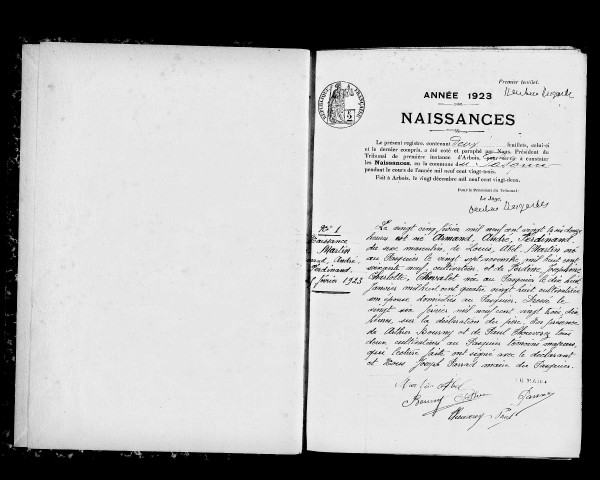 Premier feuillet.
ANNÉE 1923
NAISSANCES
RÉPUBLIQUE FRANÇAISE
Le présent registre, contenant deux feuillets, celui-ci
et le dernier compris, a été coté et paraphé par Nous, Président du
Tribunal de première instance d'Arbois, pour servir à constater
les Naissances, en la commune de
pendant le cours de l'année mil neuf cent vingt-trois.
Fait à Arbois, le vingt décembre mil neuf cent vingt-deux.
Pour le Président du Tribunal:
Le Juge,
N° 1
Naissance
Martin
André
Ferdinand
février 1923
Le vingt cinq février mil neuf cent vingt trois
heures est né Armand, André, Ferdinand,
du sexe masculin, de Louis, Abel Martin né
au Pasquier le vingt sept novembre mil huit cent
soixante neuf, cultivateur, et de Joséphine
Charlotte, née au Pasquier le dix huit
janvier mil huit cent quatre vingt huit cultivatrice
son épouse domiciliés au Pasquier. Dressé le
vingt six février mil neuf cent vingt trois dix
heures, sur la déclaration du père. En présence
de Arthur Bourny et de Paul Thouverey tous
deux cultivateurs au Pasquier témoins majeurs,
qui, lecture faite, ont signé avec le déclarant
et Nous Joseph maire du Pasquier.
Martin Abel
LE MAIRE
Bourny Arthur
Thouverey Paul